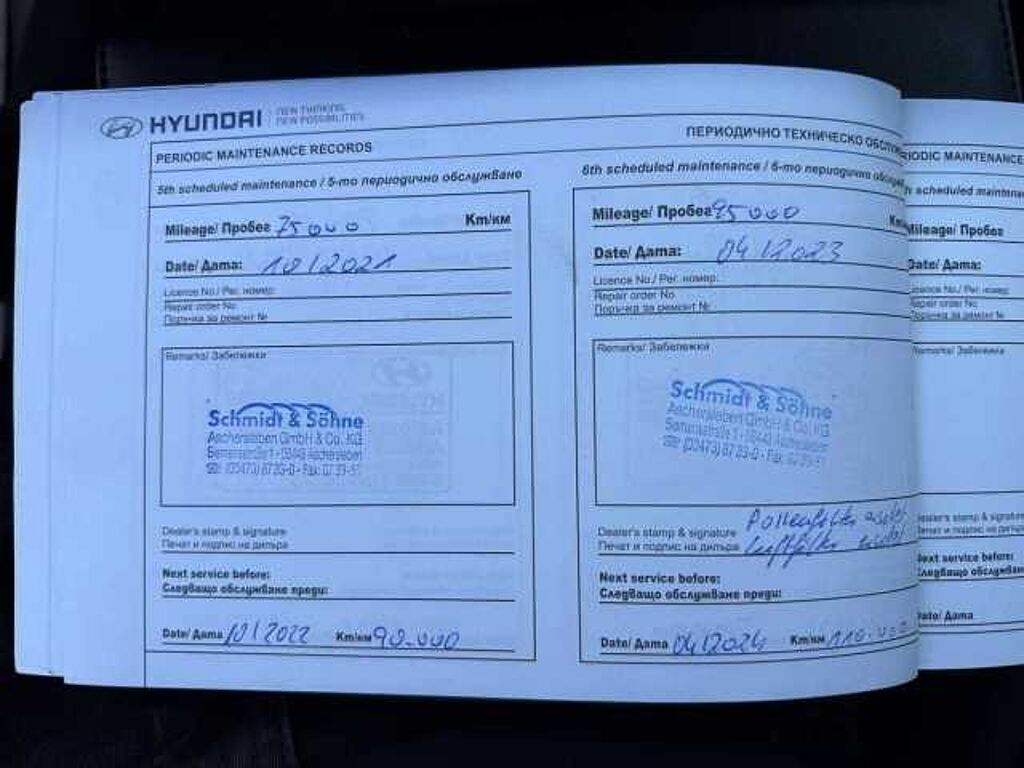 HYUNDAI
NEW THINKING.
NEW POSSIBILITIES.
PERIODIC MAINTENANCE RECORDS
ПЕРИОДИЧНО ТЕХНИЧЕСКО
5th scheduled maintenance / 5-то периодично обслужване
Mileage/ Пробег 75000 Km/км
Date/ Дата: 10/2021
Licence No./ Рег. номер:
Repair order No
Поръчка за ремонт №
Remarks/ Забележки
Schmidt & Söhne
Aschersleben GmbH & Co. KG
Dealer's stamp & signature
Печат и подпис на дилъра
Next service before:
Следващо обслужване преди:
Date/ Дата 10/2022 Km/км 90.000
6th scheduled maintenance / 6-то периодично
Mileage/ Пробег 95000
Date/ Дата: 04/2023
Licence No./ Рег. номер:
Repair order No
Поръчка за ремонт №
Remarks/ Забележки
Schmidt & Söhne
Aschersleben GmbH & Co. KG
Dealer's stamp & signature Pollenfilter
Печат и подпис на дилъра Luftfilter
Next service before:
Следващо обслужване преди:
Date/ Дата 04/2024 Km/км
MAINTENANCE
scheduled
Mileage/ Пробег
Date/ Дата:
Licence No./ Рег. номер:
Repair order No
Поръчка за ремонт №
Remarks/ Забележки
stamp & signature
Next service before:
Следващо
Дата